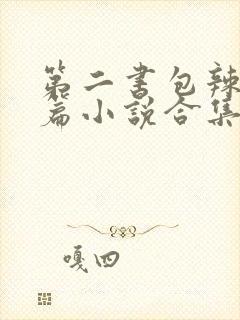 第二书包辣
篇小说合集
嘎四